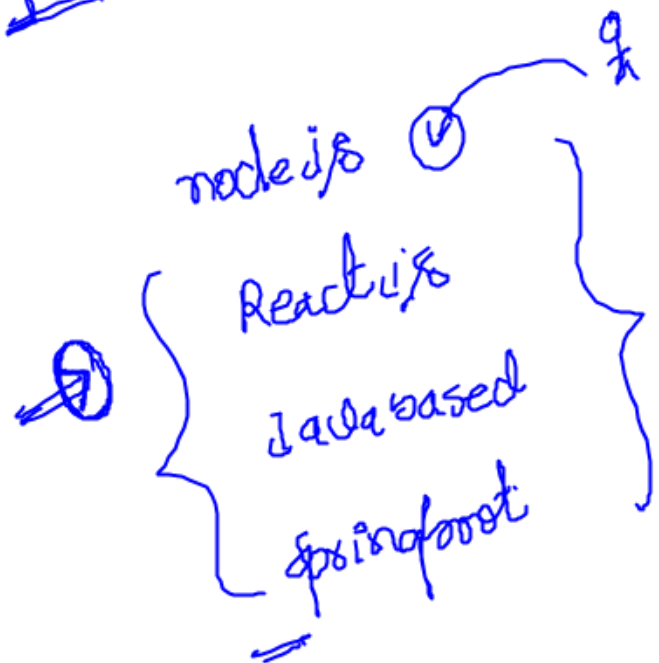 node.js
React.js
Java based
Springboot